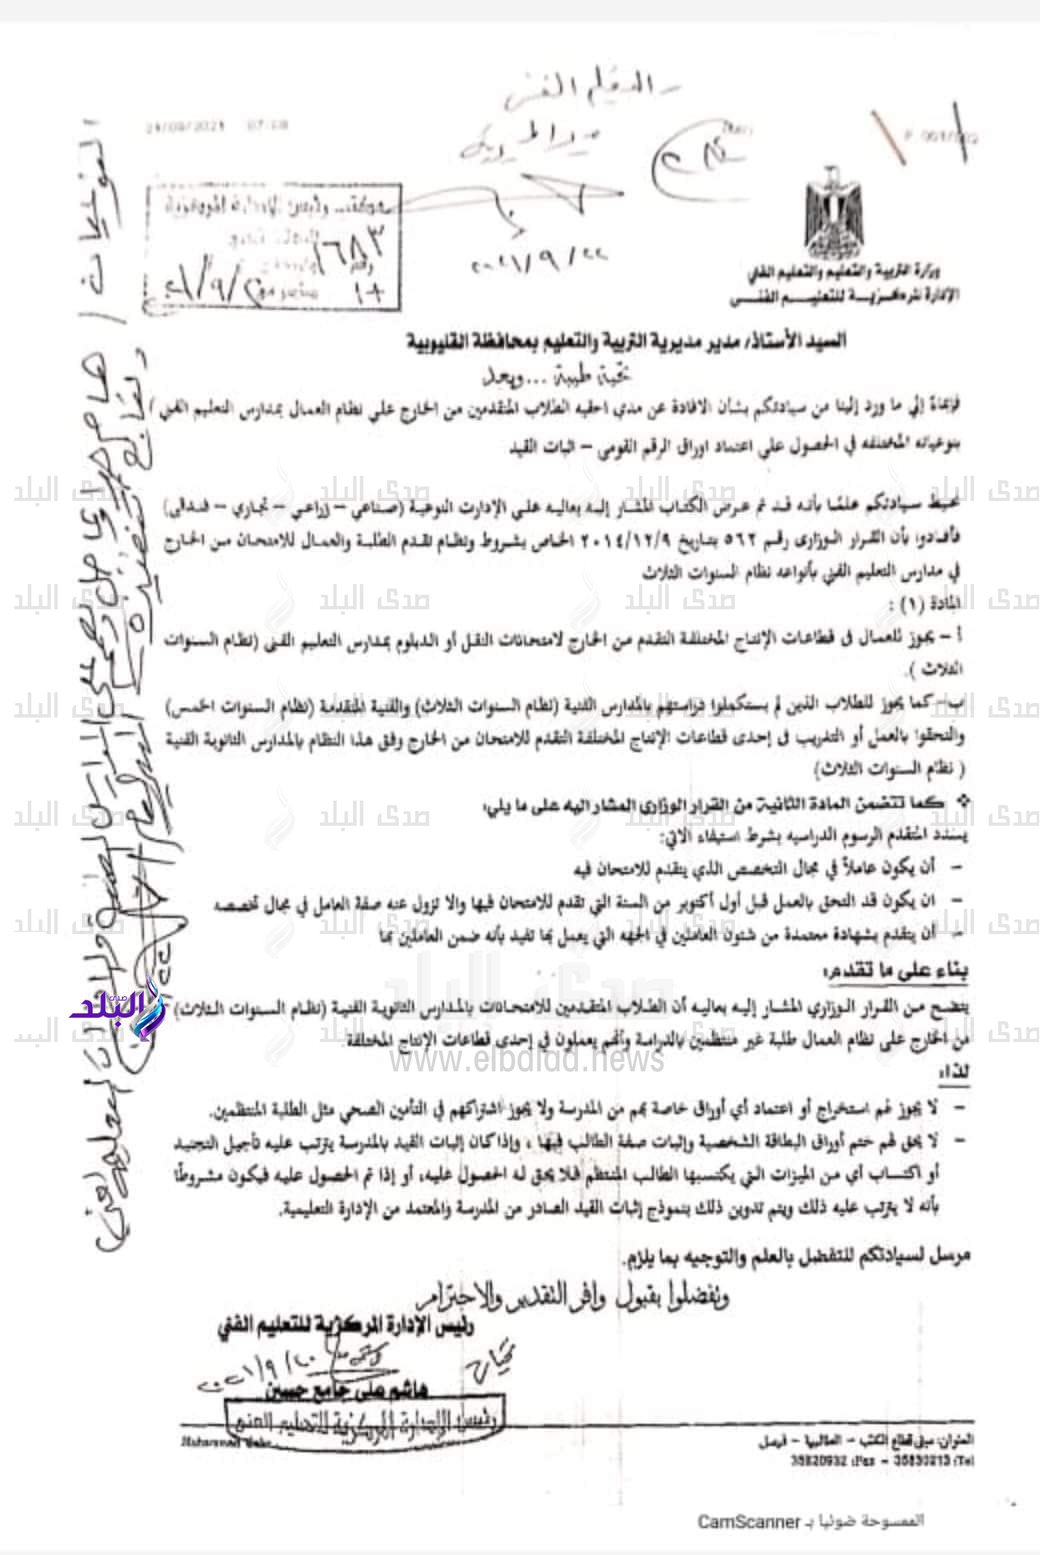 التعليم الفني
21/09/2021 07:08
P 001/002
١٦٨٣
٢٠٢١/٩/٢٢
وزارة التربية والتعليم والتعليم الفني
الإدارة المركزية للتعليم الفني
السيد الأستاذ/ مدير مديرية التربية والتعليم بمحافظة القليوبية
تحية طيبة ... وبعد
فإيماءً إلي ما ورد إلينا من سيادتكم بشأن الافادة عن مدي احقيه الطلاب المتقدمين من الخارج علي نظام العمال بمدارس التعليم الفني )
بنوعياته المختلفه في الحصول علي اعتماد اوراق الرقم القومى – اثبات القيد
نحيط سيادتكم علمًا بأنه قد تم عرض الكتاب المشار إليه بعاليه على الإدارت النوعية (صناعي – زراعي – تجاري – فندقى)
فأفادوا بأن القرار الوزارى رقم ٥٦٢ بتاريخ ٢٠١٤/١٢/٩ الخاص بشروط ونظام تقدم الطلبة والعمال للامتحان من الخارج
في مدارس التعليم الفني بأنواعه نظام السنوات الثلاث
المادة (١) :
أ – يجوز للعمال فى قطاعات الإنتاج المختلفة التقدم من الخارج لامتحانات النقل أو الدبلوم بمدارس التعليم الفنى (نظام السنوات
الثلاث ).
ب– كما يجوز للطلاب الذين لم يستكملوا دراستهم بالمدارس الفنية (نظام السنوات الثلاث) والفنية المتقدمة (نظام السنوات الخمس)
والتحقوا بالعمل أو التدريب فى إحدى قطاعات الإنتاج المختلفة التقدم للامتحان من الخارج وفق هذا النظام بالمدارس الثانوية الفنية
( نظام السنوات الثلاث)
❖ كما تتضمن المادة الثانية من القرار الوزارى المشار اليه على ما يلي:
يسدد المتقدم الرسوم الدراسيه بشرط استيفاء الاتي:
– أن يكون عاملاً في مجال التخصص الذي يتقدم للامتحان فيه
– ان يكون قد التحق بالعمل قبل أول أكتوبر من السنة التي تقدم للامتحان فيها والا تزول عنه صفة العامل في مجال تخصصه
– أن يتقدم بشهادة معتمدة من شئون العاملين في الجهه التي يعمل بها تفيد بأنه ضمن العاملين بها
بناء على ما تقدم:
يتضح من القرار الوزاري المشار إليه بعاليه أن الطلاب المتقدمين للامتحانات بالمدارس الثانوية الفنية (نظام السنوات الثلاث)
من الخارج على نظام العمال طلبة غير منتظمين بالدراسة وأنهم يعملون في إحدى قطاعات الإنتاج المختلفة.
لذا:
– لا يجوز لهم استخراج أو اعتماد أي أوراق خاصة بهم من المدرسة ولا يجوز اشتراكهم في التأمين الصحي مثل الطلبة المنتظمين.
– لا يحق لهم ختم أوراق البطاقة الشخصية وإثبات صفة الطالب فيها ، وإذا كان إثبات القيد بالمدرسة يترتب عليه تأجيل التجنيد
أو اكتساب أي من الميزات التي يكتسبها الطالب المنتظم فلا يحق له الحصول عليه، أو إذا تم الحصول عليه فيكون مشروطًا
بأنه لا يترتب عليه ذلك ويتم تدوين ذلك بنموذج إثبات القيد الصادر من المدرسة والمعتمد من الإدارة التعليمية.
مرسل لسيادتكم للتفضل بالعلم والتوجيه بما يلزم.
وتفضلوا بقبول وافر التقدير والاحترام
رئيس الإدارة المركزية للتعليم الفني
٢٠٢١/٩/٢٠
هاشم على جامع حسين
رئيس الإدارة المركزية للتعليم الفنى
العنوان: مبنى قطاع الكتب – الطالبية – فيصل
35820932 :Fax – 35830213 :Tel
صدى البلد
www.elbalad.news
الممسوحة ضوئيا بـ CamScanner